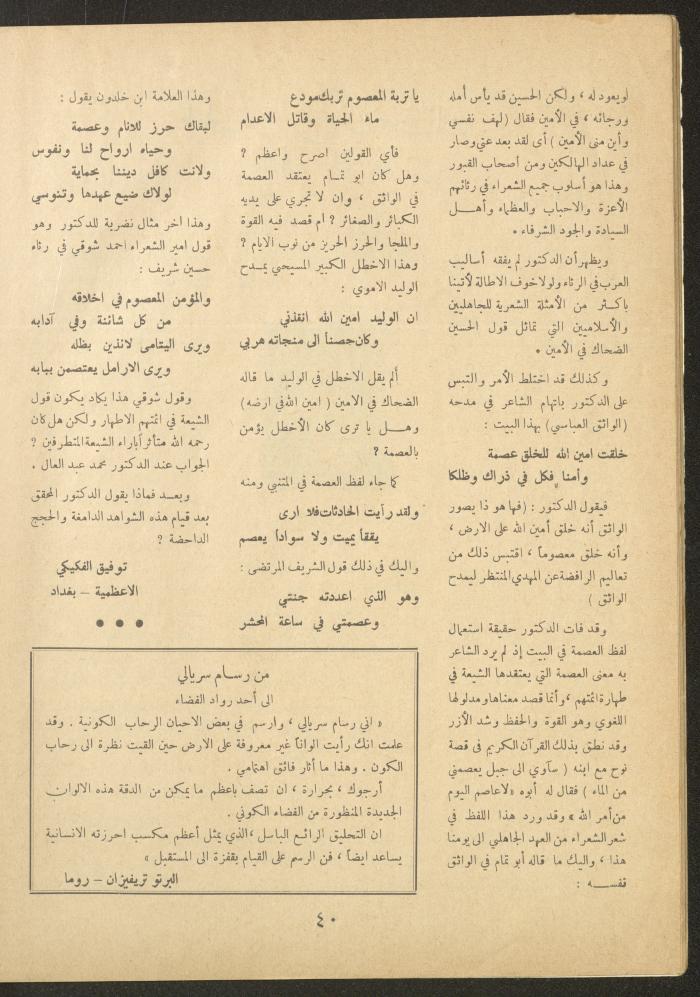 لو يعود له ، ولكن الحسين قد يأس أمله
ورجائه ، في الأمين فقال (لهف نفسي
وأين منى الأمين ) أى لقد بعد عني وصار
في عداد الهالكين ومن أصحاب القبور
وهذا هو أسلوب جميع الشعراء في رثائهم
الأعزة والاحباب والعظماء وأهـــل
السيادة والجود الشرفاء .
ويظهر أن الدكتور لم يفقه أساليب
العرب في الرثاء ولولا خوف الاطالة لأتينا
باكثر من الأمثلة الشعرية للجاهليين
والأسلاميين التي تماثل قول الحسين
الضحاك في الأمين .
وكذلك قد اختلط الأمر والتبس
على الدكتور باتهام الشاعر في مدحه
(الواثق العباسي) بهذا البيت :
خلقت امين الله للخلق عصمة
وأمنا فكل في ذراك وظلكا
فيقول الدكتور : (فها هو ذا يصور
الواثق أنه خلق أمين الله على الارض ،
وأنه خلق معصوماً ، اقتبس ذلك من
تعاليم الرافضة عن المهدي المنتظر ليمدح
الواثق )
وقد فات الدكتور حقيقة استعمال
لفظ العصمة في البيت إذ لم يرد الشاعر
به معنى العصمة التي يعتقدها الشيعة في
طهارة ائمتهم ، وأنما قصد معناها ومدلولها
اللغوي وهو القوة والحفظ وشد الأزر
وقد نطق بذلك القرآن الكريم في قصة
نوح مع ابنه ( سآوي الى جبل يعصمني
من الماء ) فقال له أبوه « لاعاصم اليوم
من أمر الله » وقد ورد هذا اللفظ في
شعر الشعراء من العهد الجاهلي الى يومنا
هذا ، واليك ما قاله أبو تمام في الواثق
نفســـه :
يا تربة المعصوم تربك مودع
ماء الحياة وقاتل الاعدام
فأي القولين اصرح واعظم ؟
وهل كان ابو تمـام يعتقد العصمة
في الواثق ، وان لا تجري على يديه
الكبائر والصغائر ؟ ام قصد فيه القوة
والملجا والحرز الحريز من نوب الايام ؟
وهذا الاخطل الكبير المسيحي يمـدح
الوليد الاموي :
ان الوليد امين الله انقذني
وكان حصناً الى منجاته هربي
ألم يقل الاخطل في الوليد ما قاله
الضحاك في الامين ( امين الله في ارضه )
وهـــل يا ترى كان الأخطل يؤمن
بالعصمة ؟
كما جاء لفظ العصمة في المتنبي ومنه
ولقد رأيت الحادثات فلا ارى
يققأ يميت ولا سواداً يعصم
واليك في ذلك قول الشريف المرتضى :
وهو الذي اعددته جنتي
وعصمتي في ساعة المحشر
وهذا العلامة ابن خلدون يقول :
لبقاك حرز للانام وعصمة
وحياه ارواح لنا ونفوس
ولانت كافل ديننا بحماية
لولاك ضيع عهدها وتنوسي
وهذا اخر مثال نضربه للدكتور وهو
قول امير الشعراء احمد شوقي في رثاء
حسين شريف :
والمؤمن المعصوم في اخلاقه
من كل شائنة وفي آدابه
ويرى اليتامى لائذين بظله
ويرى الارامل يعتصمن ببابه
وقول شوقي هذا يكاد يكون قول
الشيعة في ائمتهم الاطهار ولكن هل كان
رحمه الله متأثراً باراء الشيعة المتطرفين ؟
الجواب عند الدكتور محمد عبد العال .
وبعـد فماذا يقول الدكتور المحقق
بعد قيام هذه الشواهد الدامغة والحجج
الداحضة ؟
توفيق الفكيكي
الاعظمية – بغداد
● ● ●
من رسـام سريالي
الى أحد رواد الفضاء
« اني رسام سريالي ، وارسم في بعض الاحيان الرحاب الكونية . وقد
علمت انك رأيت الواناً غير معروفة على الارض حين القيت نظرة الى رحاب
الكون . وهذا ما أثار فائق اهتمامي .
أرجوك ، بحرارة ، ان تصف باعظم ما يمكن من الدقة هذه الالوان
الجديدة المنظورة من الفضاء الكوني .
ان التحليق الرائـع الباسل ، الذي يمثل أعظم مكسب احرزته الانسانية
يساعد ايضاً ، فن الرسم على القيام بقفزة الى المستقبل »
البرتو تريفيزان – روما
٤٠